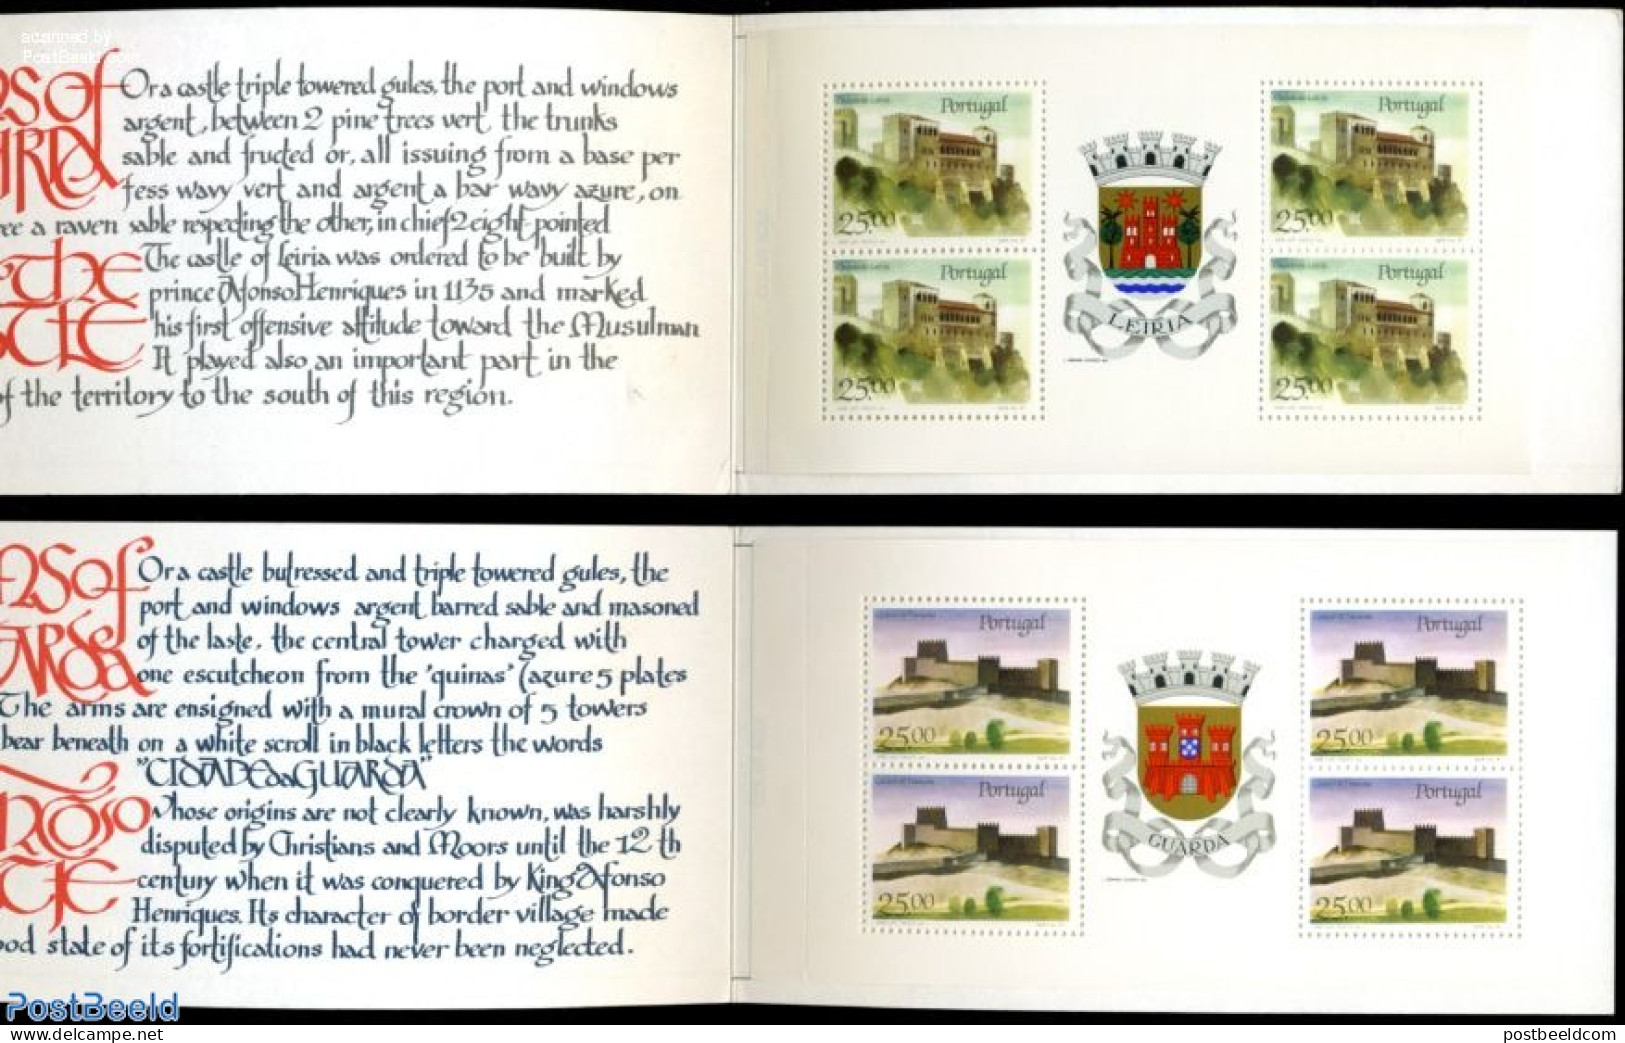 scanned by
PostBeeld.com
Or a castle triple towered gules, the port and windows
argent, between 2 pine trees vert, the trunks
sable and fructed or, all issuing from a base per
fess wavy vert and argent a bar wavy azure, on
a raven sable respecting the other, in chief 2 eight pointed
the
The castle of Leiria was ordered to be built by
prince Afonso Henriques in 1135 and marked
his first offensive attitude toward the Musulman
It played also an important part in the
of the territory to the south of this region.
Portugal
25.00
Portugal
25.00
LEIRIA
Portugal
25.00
Portugal
25.00
Or a castle butressed and triple towered gules, the
port and windows argent barred sable and masoned
of the laste, the central tower charged with
one escutcheon from the 'quinas' (azure 5 plates
The arms are ensigned with a mural crown of 5 towers
bear beneath on a white scroll in black letters the words
"CIDADE da GUARDA"
whose origins are not clearly known, was harshly
disputed by Christians and Moors until the 12 th
century when it was conquered by King Afonso
Henriques. Its character of border village made
state of its fortifications had never been neglected.
Portugal
25.00
Portugal
25.00
GUARDA
Portugal
25.00
Portugal
25.00
PostBeeld
www.postbeeld.com
postbeeldcom